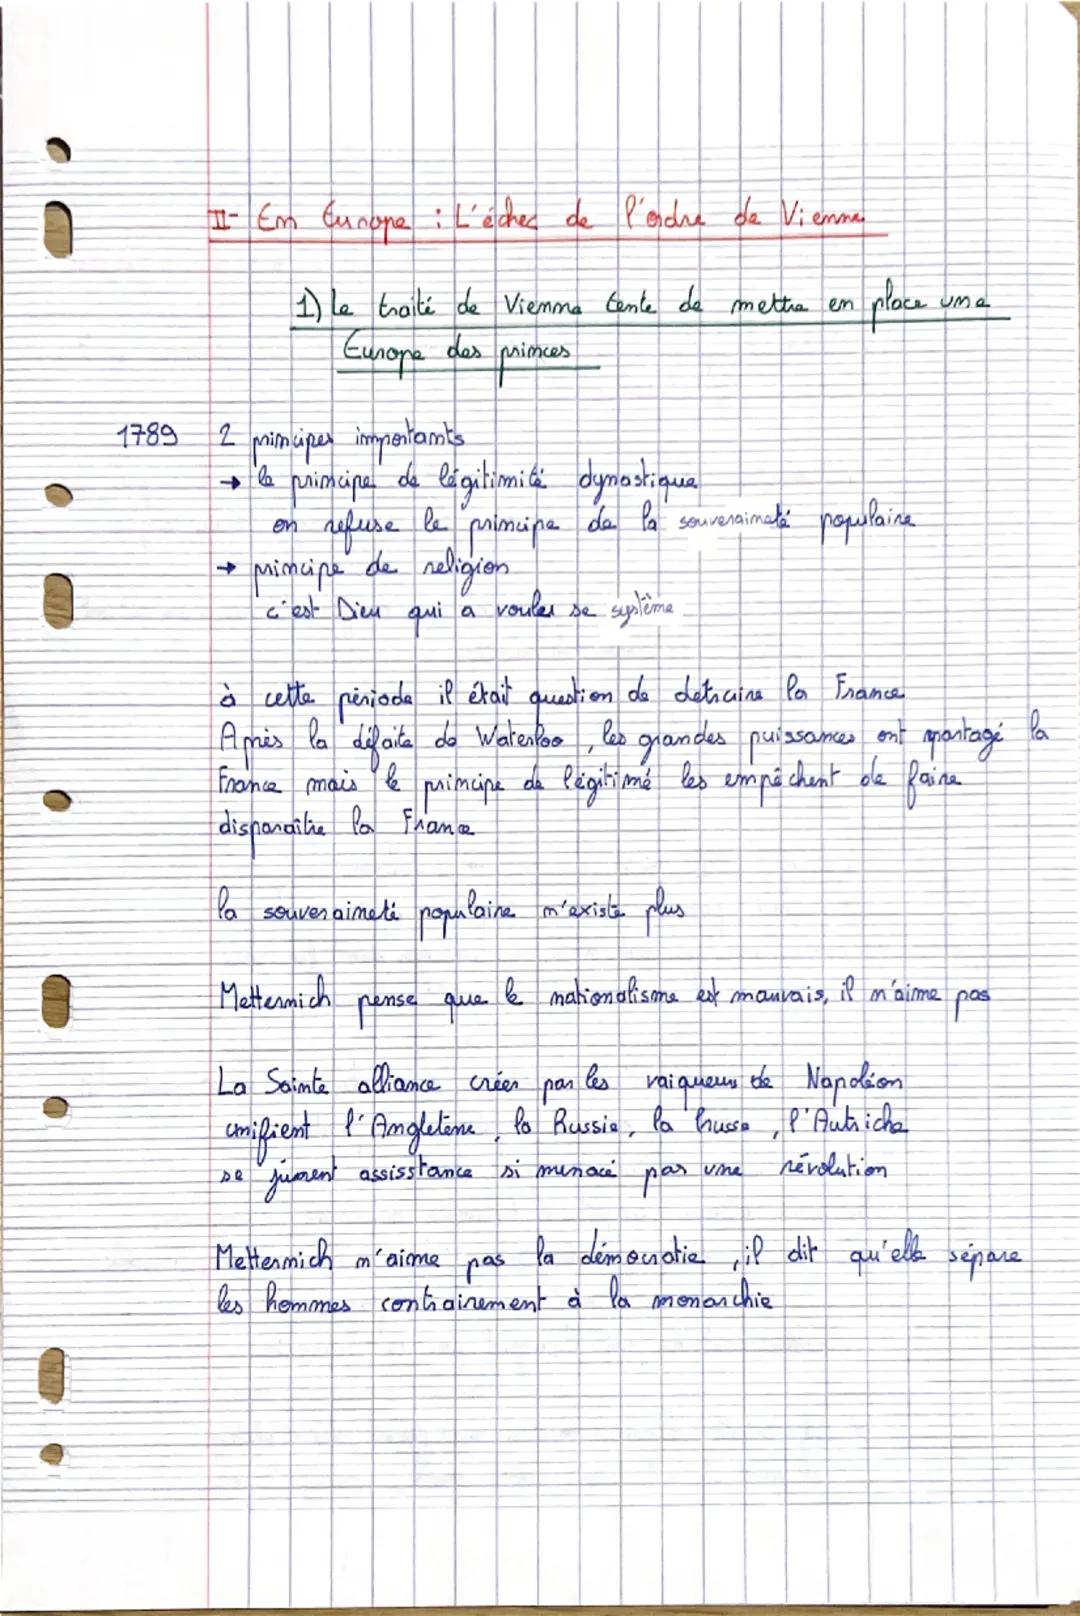 II- En Europe : L'échec de l'ordre de Vienne
1) Le traité de Vienne tente de mettre en place une
Europe des princes
1789 2 principes importants
→ le principe de légitimité dynastique
on refuse le principe de la souveraineté populaire
→ principe de religion
c'est Dieu qui a voulu se système
à cette période il était question de detruire la France
Après la défaite de Waterloo, les grandes puissances ont partagé la
France mais le principe de légitimé les empêchent de faire
disparaître la France
la souveraineté populaire n'existe plus
Metternich pense que le nationalisme est mauvais, il n'aime pas
La Sainte alliance créer par les vaiqueurs de Napoléon
unifient l'Angletère, la Russie, la Prusse, l'Autriche
se jurent assisstance si menacé par une révolution
Metternich n'aime pas la démocratie, il dit qu'elle sépare
les hommes contrairement à la monarchie